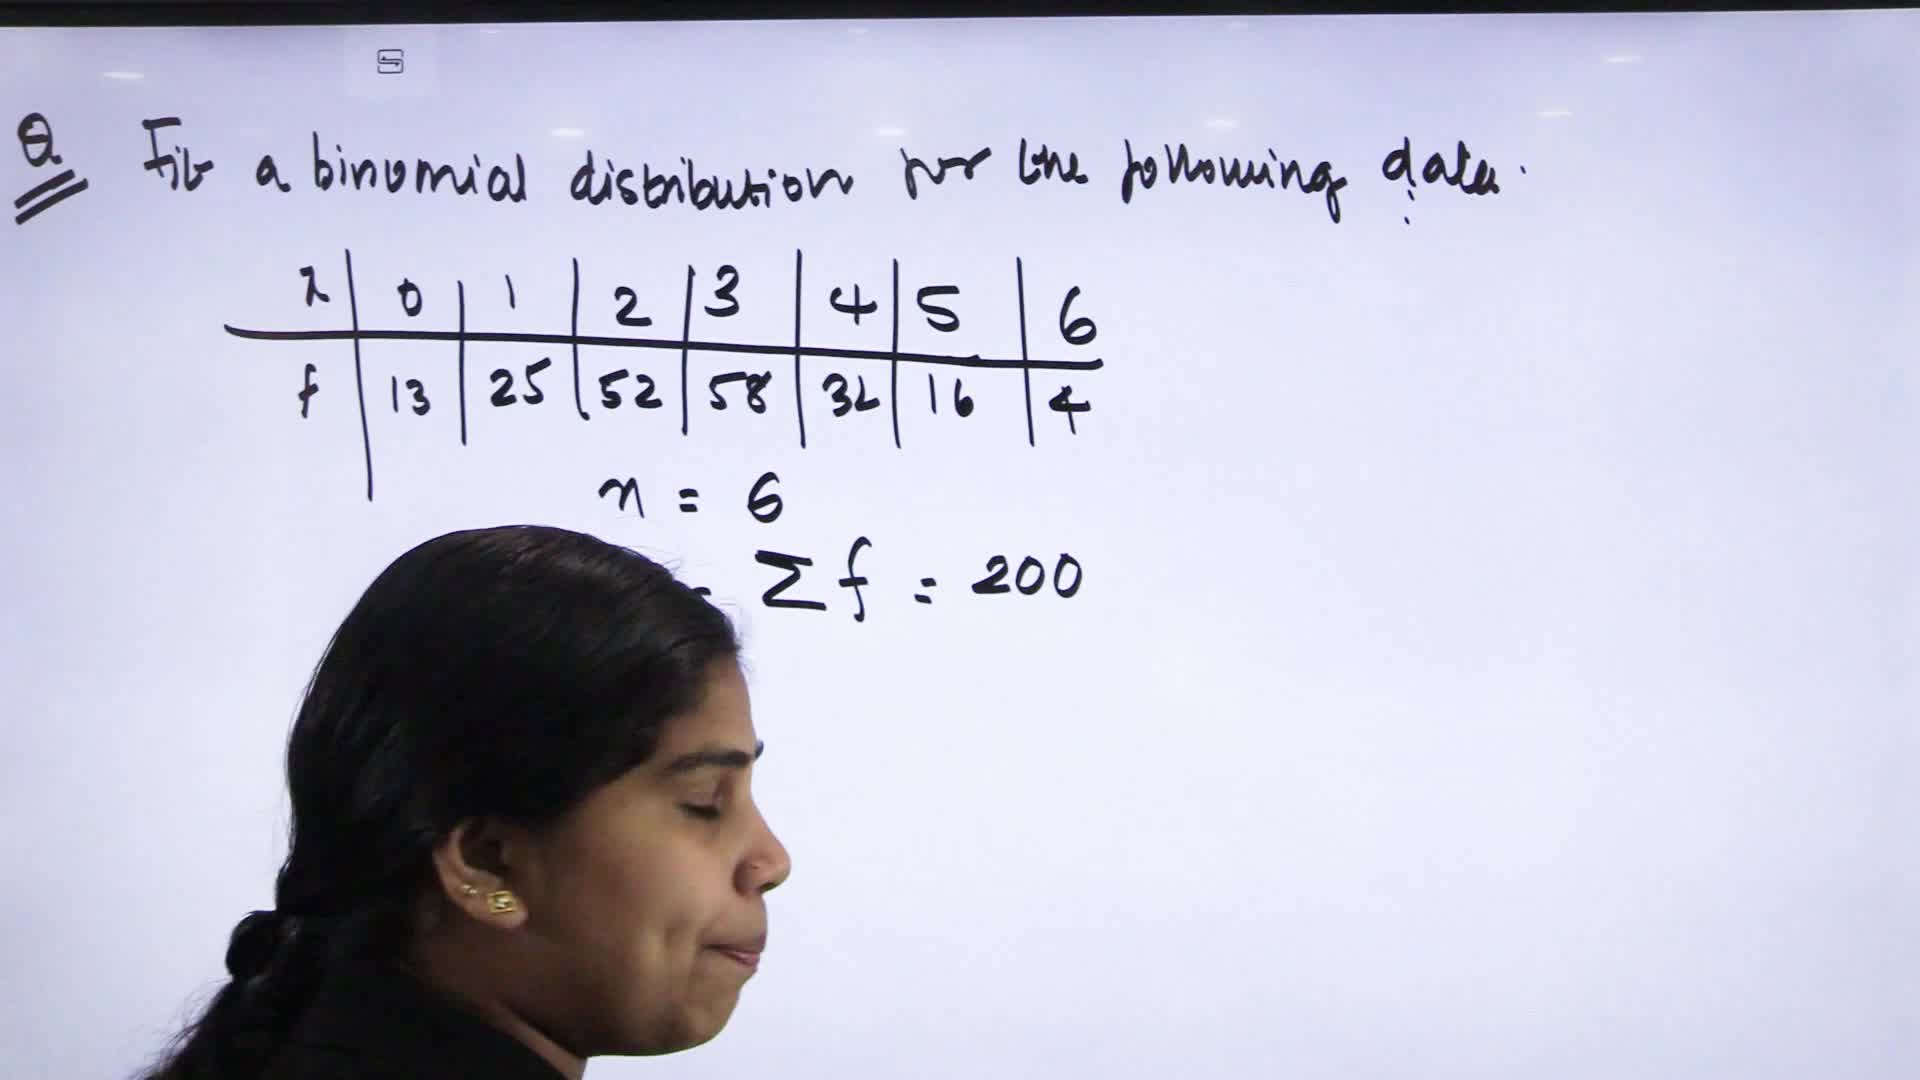 Q Fit a binomial distribution for the following data.
x 0 1 2 3 4 5 6
f 13 25 52 58 32 16 4
n = 6
= Σ f = 200